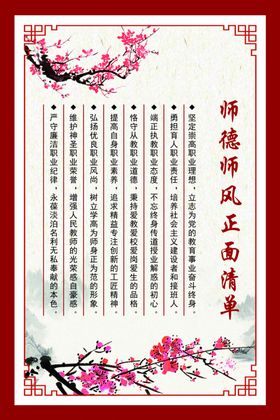 师德师风正面清单
◆坚定崇高职业理想，立志为党的教育事业奋斗终身。
◆勇担育人职业责任，培养社会主义建设者和接班人。
◆端正执教职业态度，不忘终身传道授业解惑的初心。
◆恪守从教职业道德，秉持爱教爱校爱岗爱生的品格。
◆提高自身职业素养，追求精益专注创新的工匠精神。
◆弘扬优良职业风尚，树立学高为师身正为范的形象。
◆维护神圣职业荣誉，增强人民教师的光荣感自豪感。
◆严守廉洁职业纪律，永葆淡泊名利无私奉献的本色。